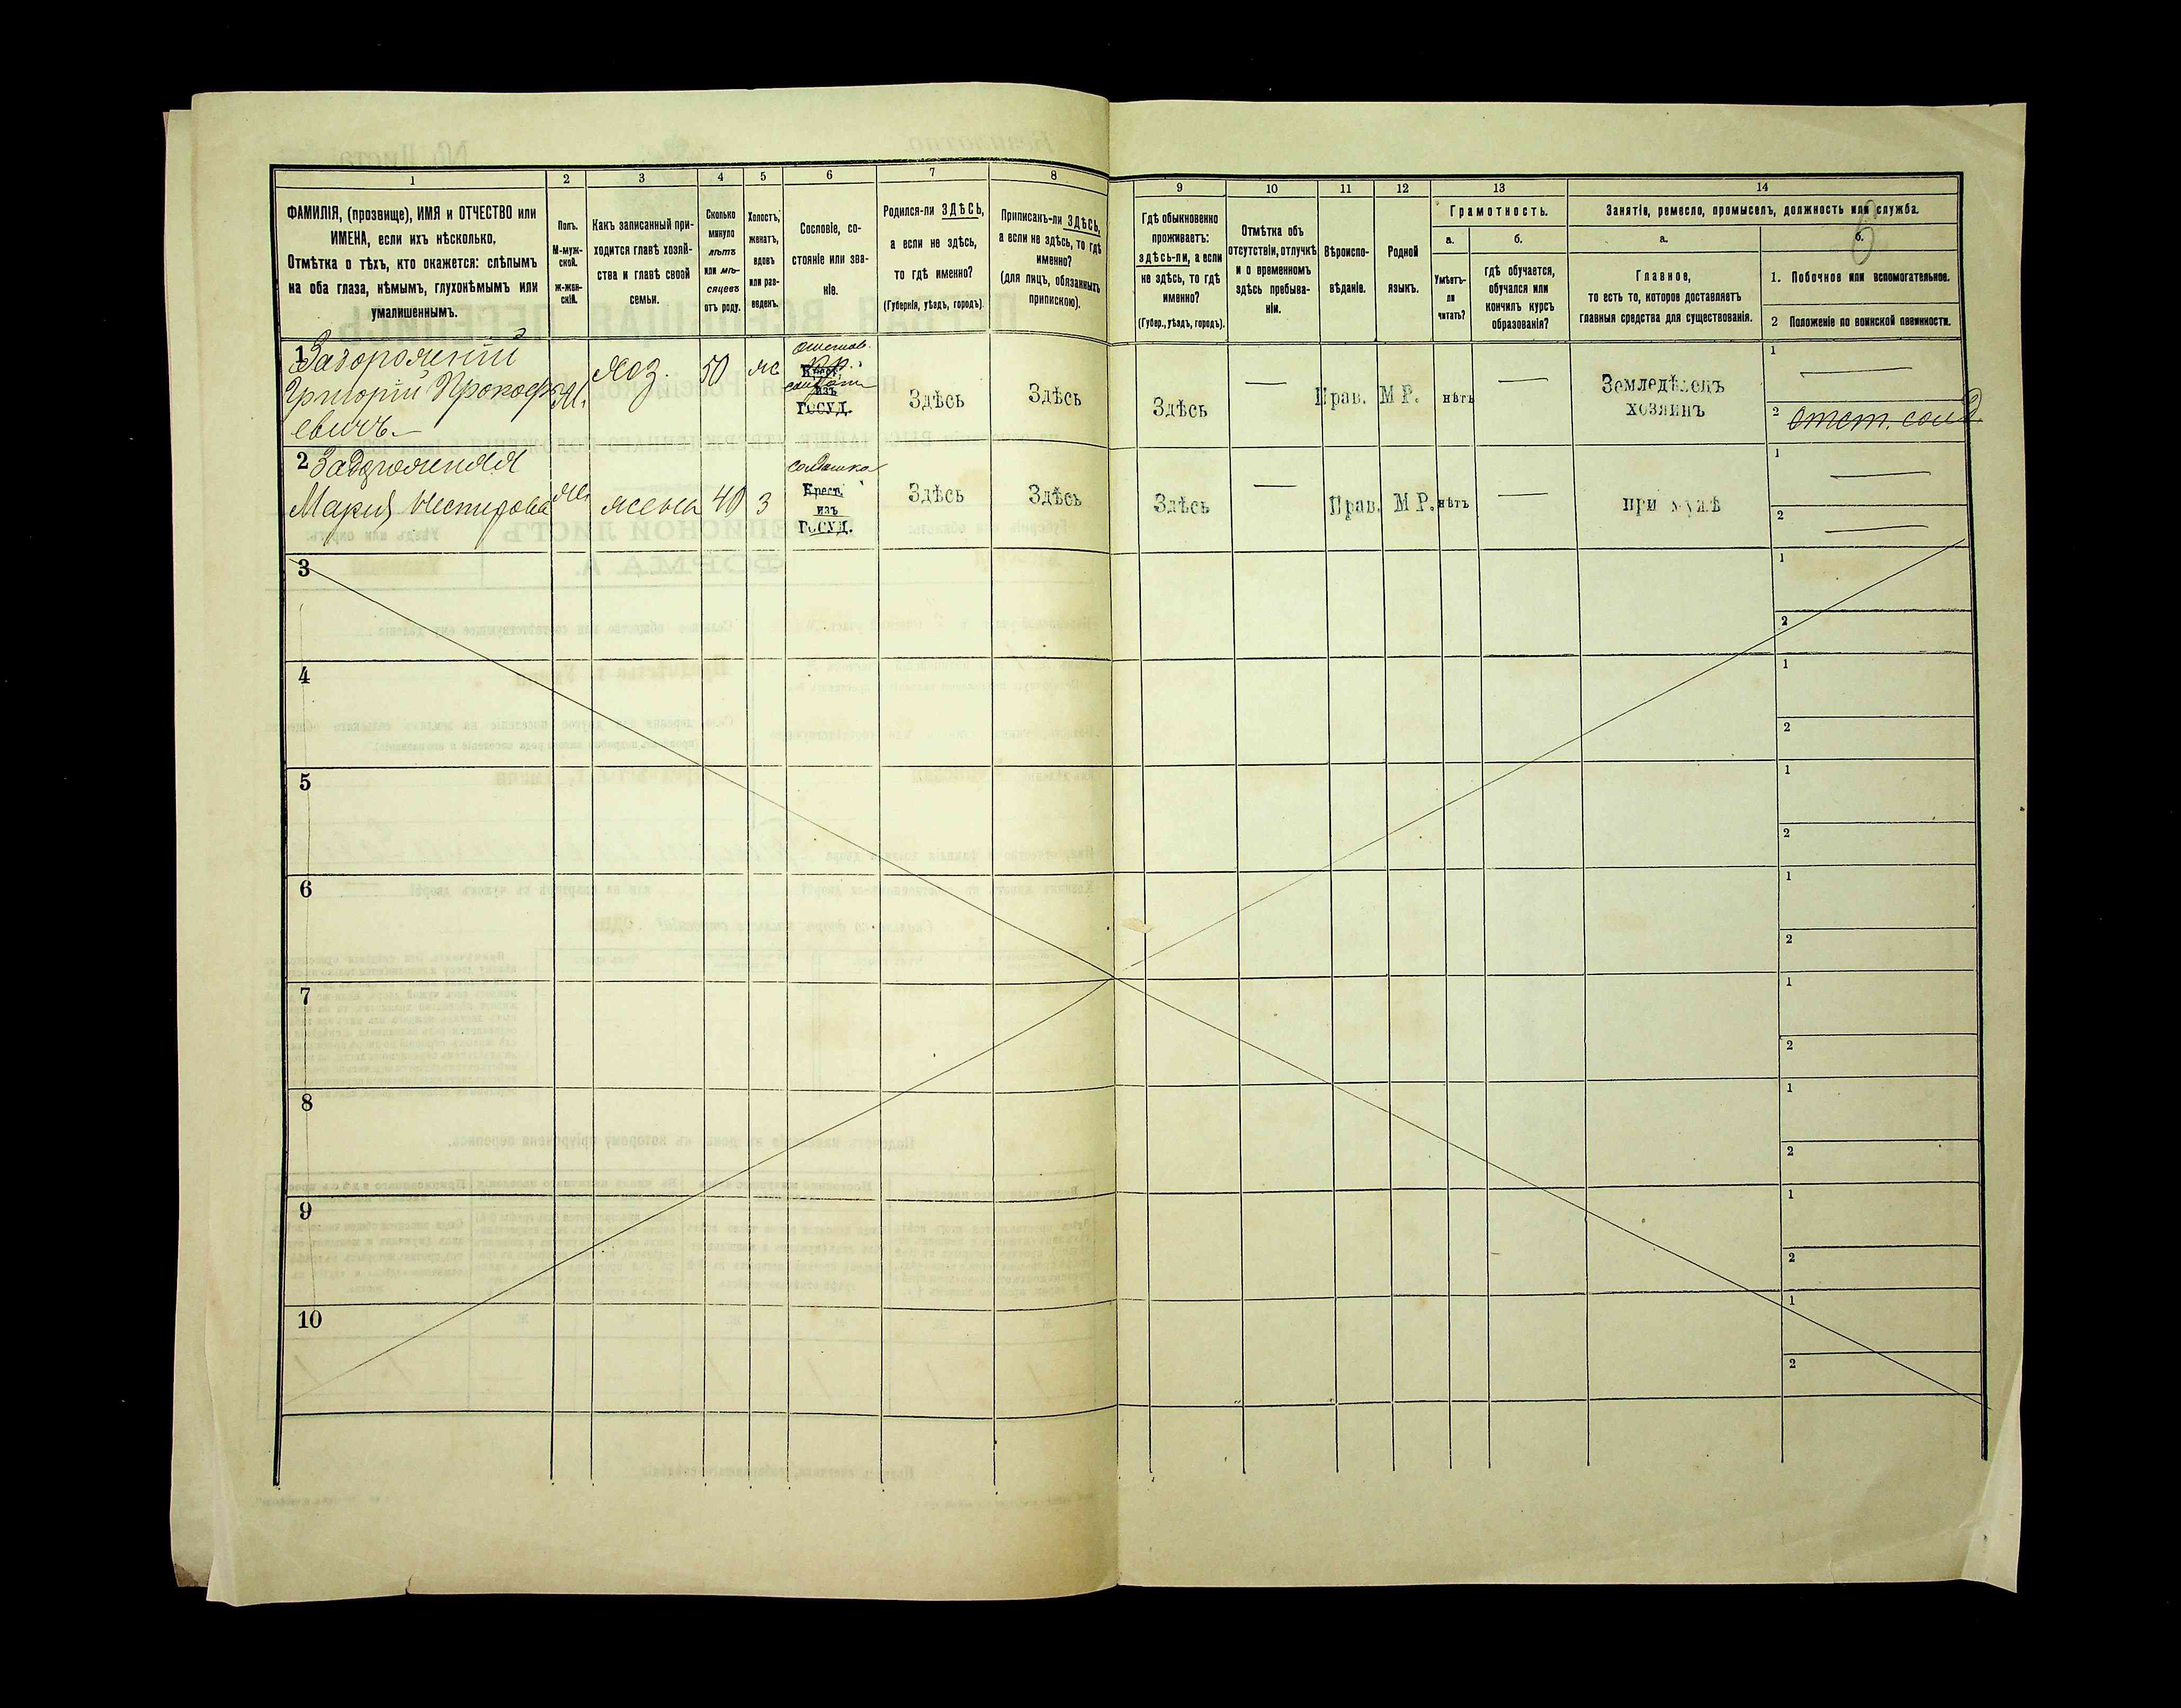 1 2 3 4 5 6 7 8 9 10 11 12 13 14
ФАМИЛІЯ, (прозвище), ИМЯ и ОТЧЕСТВО или
ИМЕНА, если ихъ нѣсколько.
Отмѣтка о тѣхъ, кто окажется: слѣпымъ
на оба глаза, нѣмымъ, глухонѣмымъ или
умалишеннымъ.
Полъ.
М-муж-
ской.
ж-жен-
скій.
Какъ записанный при-
ходится главѣ хозяй-
ства и главѣ своей
семьи.
Сколько
минуло
лѣтъ
или мѣ-
сяцевъ
отъ роду.
Холостъ,
женатъ,
вдовъ
или раз-
веденъ.
Сословіе, со-
стояніе или зва-
ніе.
Родился-ли ЗДѢСЬ,
а если не здѣсь,
то гдѣ именно?
(Губернія, уѣздъ, городъ).
Приписанъ-ли ЗДѢСЬ,
а если не здѣсь, то гдѣ
именно?
(для лицъ, обязанныхъ
припискою).
Гдѣ обыкновенно
проживаетъ:
здѣсь-ли, а если
не здѣсь, то гдѣ
именно?
(Губер., уѣздъ, городъ).
Отмѣтка объ
отсутствіи, отлучкѣ
и о временномъ
здѣсь пребыва-
ніи.
Вѣроиспо-
вѣданіе.
Родной
языкъ.
Грамотность.
а.
Умѣетъ-
ли
читать?
б.
гдѣ обучается,
обучался или
кончилъ курсъ
образованія?
Занятіе, ремесло, промыселъ, должность или служба.
6
а.
Главное,
то есть то, которое доставляетъ
главныя средства для существованія.
б.
1. Побочное или вспомогательное.
2 Положеніе по воинской повинности.
1
Григорій Прокофь
евичъ
М.
хоз.
50
ж
Крест.
изъ
ГОСУД.
Здѣсь
Здѣсь
Здѣсь
Прав.
М Р.
нѣтъ
Земледѣлецъ
хозяинъ
1
2 отст. солд
2
Марія Нестерова
ж
жена
40
З
солдатка
Крест.
изъ
ГОСУД.
Здѣсь
Здѣсь
Здѣсь
Прав.
М Р.
нѣтъ
при мужѣ
1
2
3
1
2
4
1
2
5
1
2
6
1
2
7
1
2
8
1
2
9
1
2
10
1
2